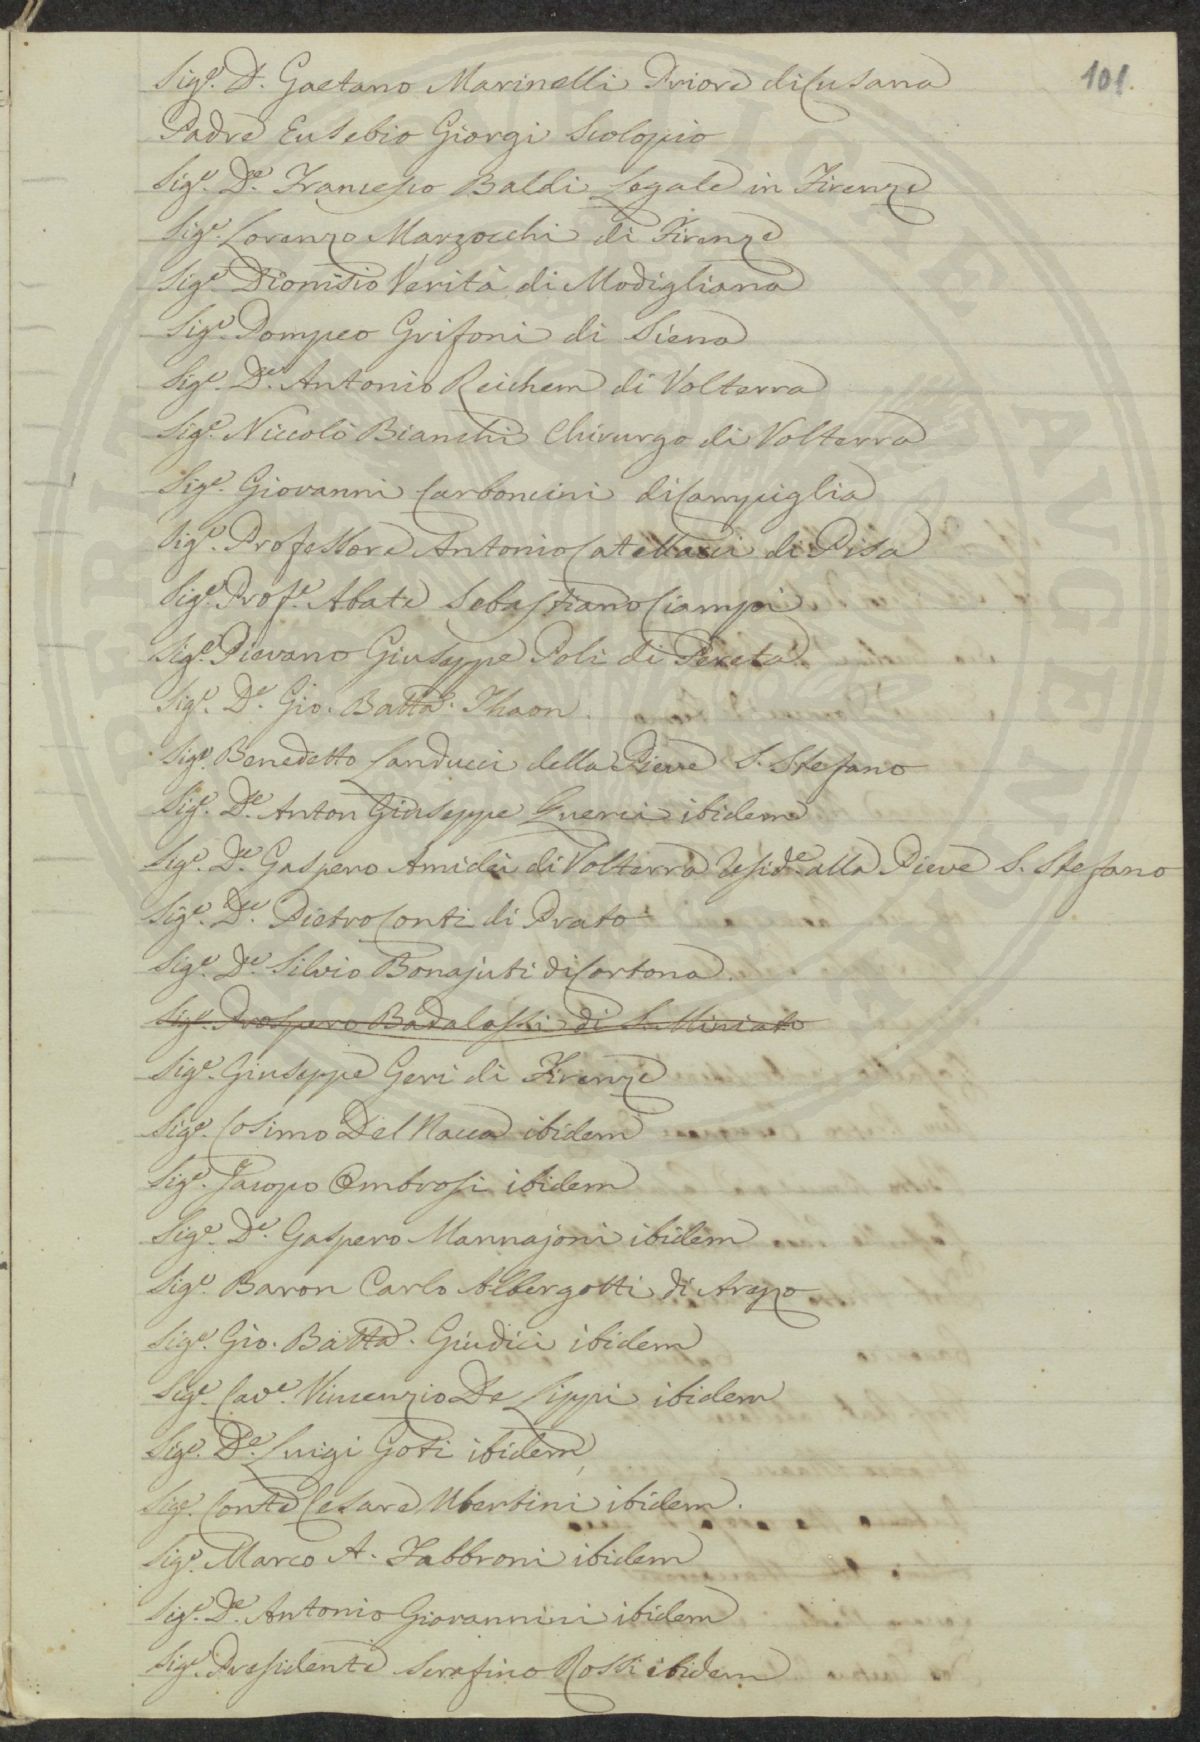 101
Sig.e D. Gaetano Marinelli Priore di Cusana
Padre Eusebio Giorgi Scolopio
Sig.e D.e Francesco Baldi Legale in Firenze
Sig.e Lorenzo Marzocchi di Firenze
Sig.e Dionisio Verità di Modigliana
Sig.e Pompeo Grifoni di Siena
Sig.e D.e Antonio Reichem di Volterra
Sig.e Niccolò Bianchi Chirurgo di Volterra
Sig.e Giovanni Carboncini di Campiglia
Sig.e Professore Antonio Catellacci di Pisa
Sig.e Prof.e Abate Sebastiano Ciampi
Sig.e Pievano Giuseppe Poli di Pereta
Sig.e D.e Gio. Batta. Thaon.
Sig.e Benedetto Landucci della Pieve S. Stefano
Sig.e D.e Anton Giuseppe Guerri ibidem
Sig.e D.e Gaspero Amidei di Volterra Resid.e alla Pieve S. Stefano
Sig.e D.e Pietro Conti di Prato
Sig.e D.e Silvio Bonajuti di Cortona.
Sig.e Prospero Badalassi di S. Miniato
Sig.e Giuseppe Geri di Firenze
Sig.e Cosimo Del Nacca ibidem
Sig.e Jacopo Ombrosi ibidem
Sig.e D.e Gaspero Mannajoni ibidem
Sig.e Baron Carlo Albergotti di Arezzo
Sig.e Gio. Batta. Giudici ibidem
Sig.e Cav.e Vincenzio De Lippi ibidem
Sig.e D.e Luigi Goti ibidem
Sig.e Conte Cesare Ubertini ibidem.
Sig.e Marco A. Fabbroni ibidem
Sig.e D.e Antonio Giovannini ibidem
Sig.e Presidente Serafino Rossi ibidem